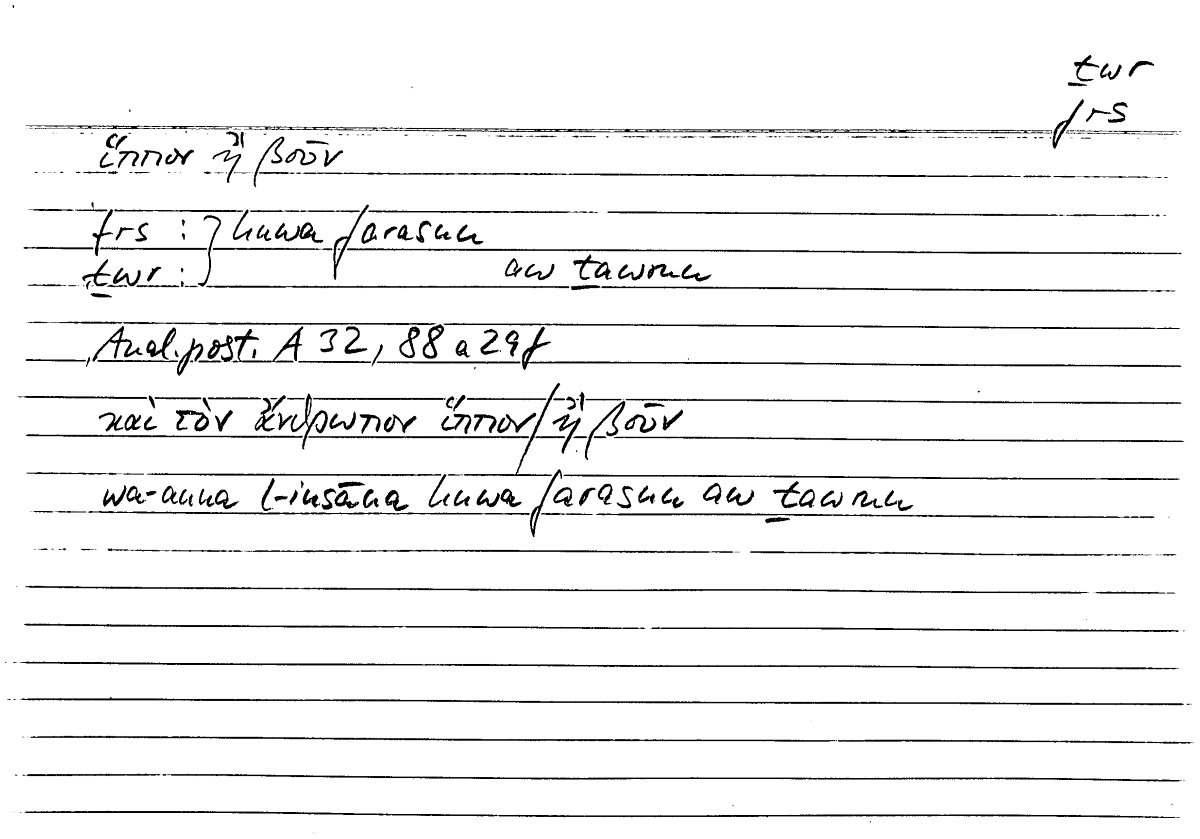 ṯwr
frs
ἵππον ἢ βοῦν
frs : } huwa farasun
ṯwr : } aw ṯawrun
Anal. post. A 32, 88 a 29f
καὶ τὸν ἄνθρωπον ἵππον / ἢ βοῦν
wa-anna l-insāna huwa farasun aw ṯawrun